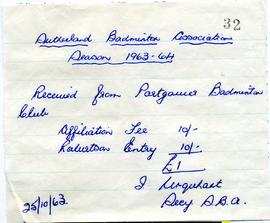 32
Sutherland Badminton Association
Season 1963-64
Received from Portgower Badminton
Club
Affiliation Fee 10/-
Entry 10/-
£1
J Urquhart
Secy S.B.A.
25/10/63.